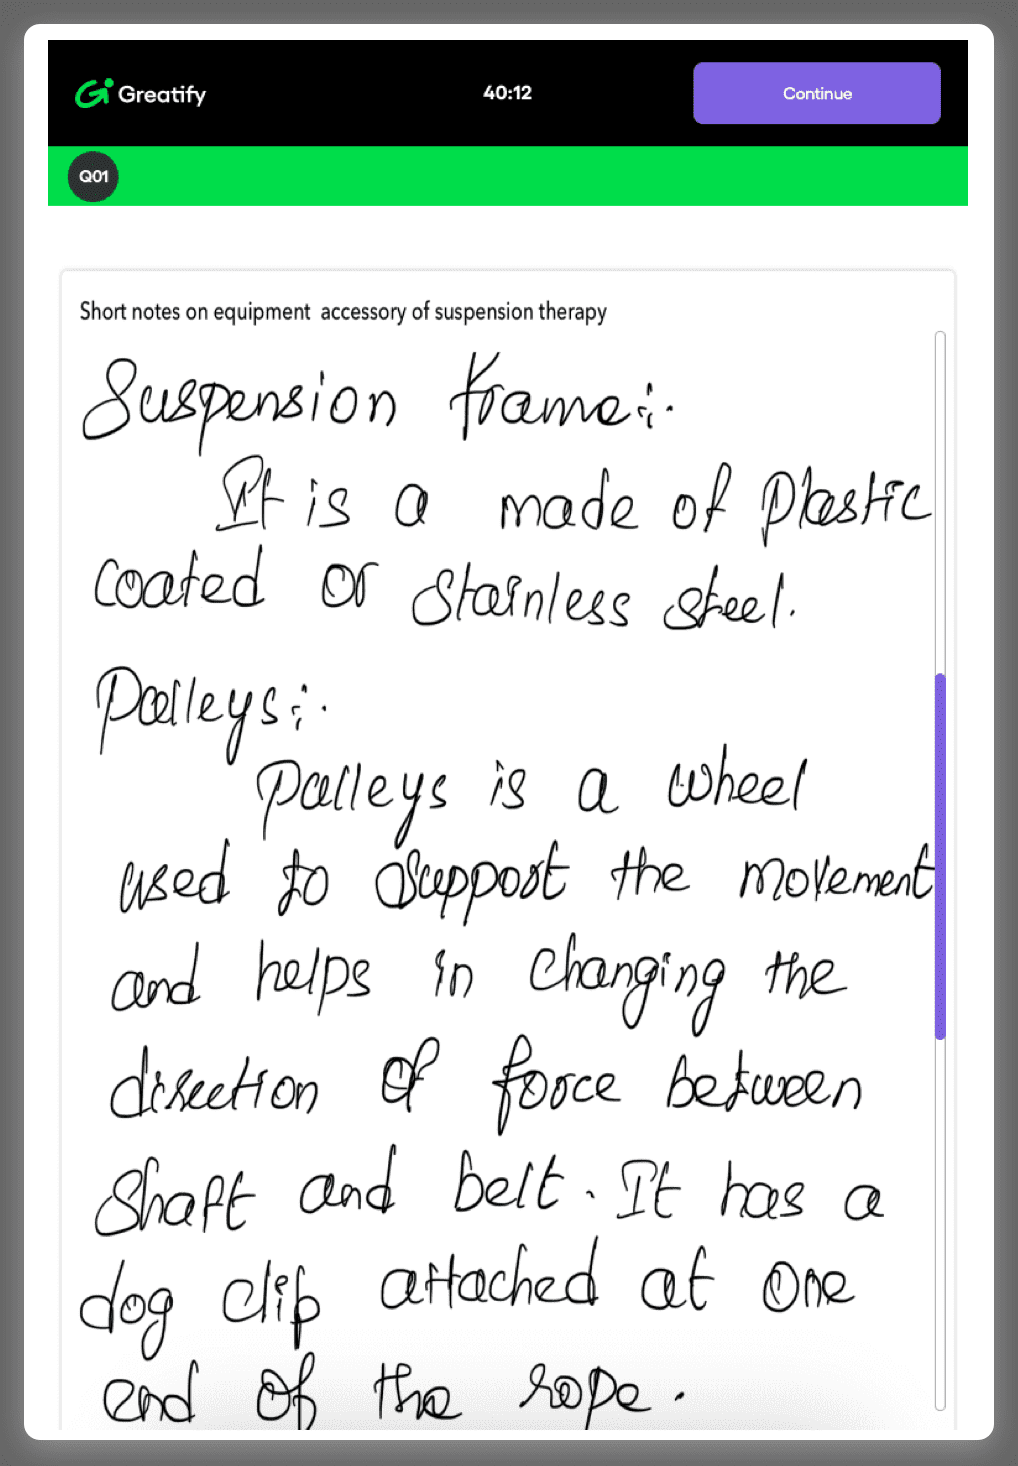 Greatify
40:12
Continue
Q01
Short notes on equipment accessory of suspension therapy
Suspension frame:-
It is a made of plastic
coated or stainless steel.
Pulleys:-
Pulleys is a wheel
used to support the movement
and helps in changing the
direction of force between
shaft and belt. It has a
dog clip attached at one
end of the rope.